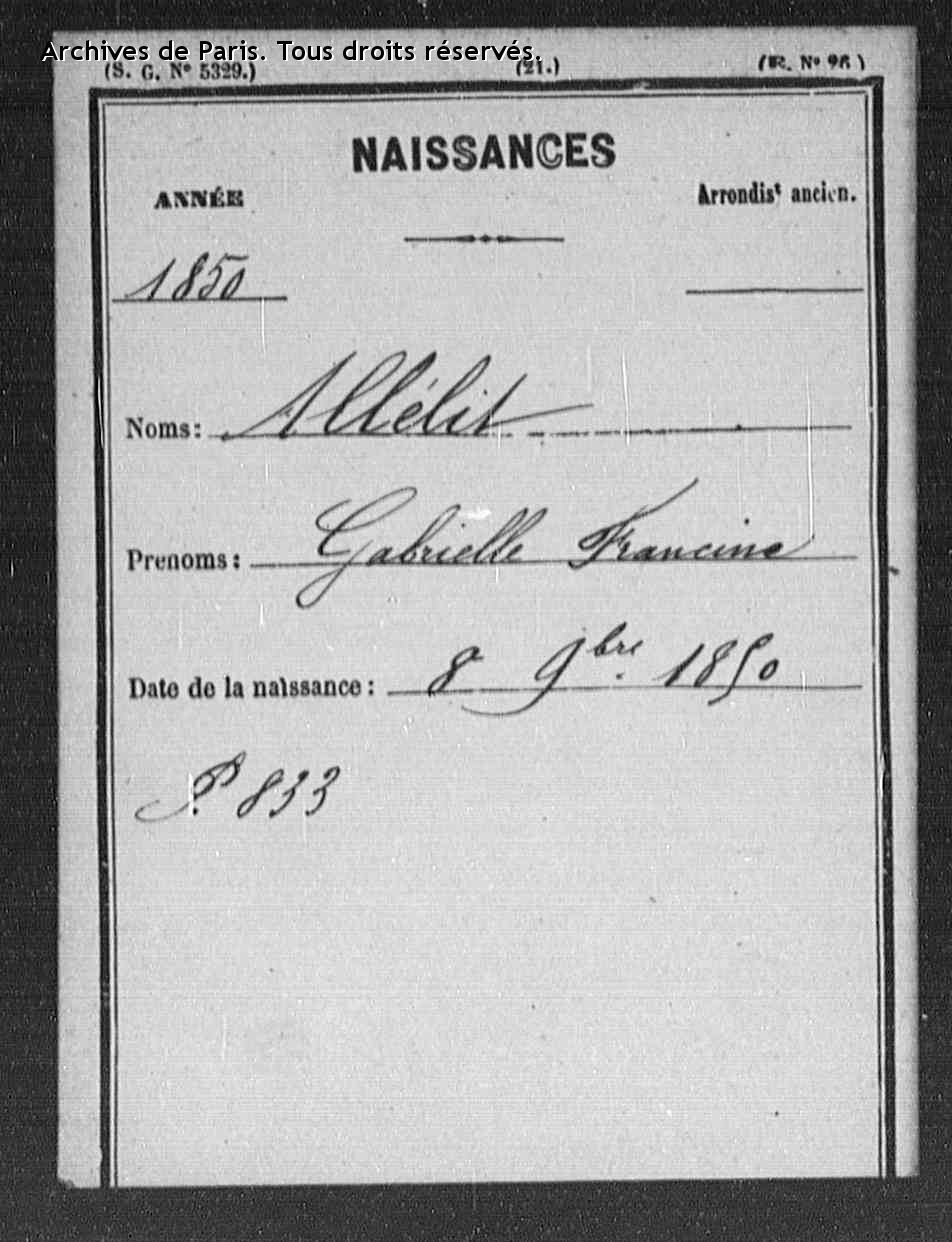 Archives de Paris. Tous droits réservés.
(S. G. Nº 5329.) (21.) (R. Nº 26)
NAISSANCES
ANNÉE Arrondisᵗ ancien.
1850
Noms: Allélit
Prenoms: Gabrielle Francine
Date de la naissance: 8 9bre. 1850
P. 833